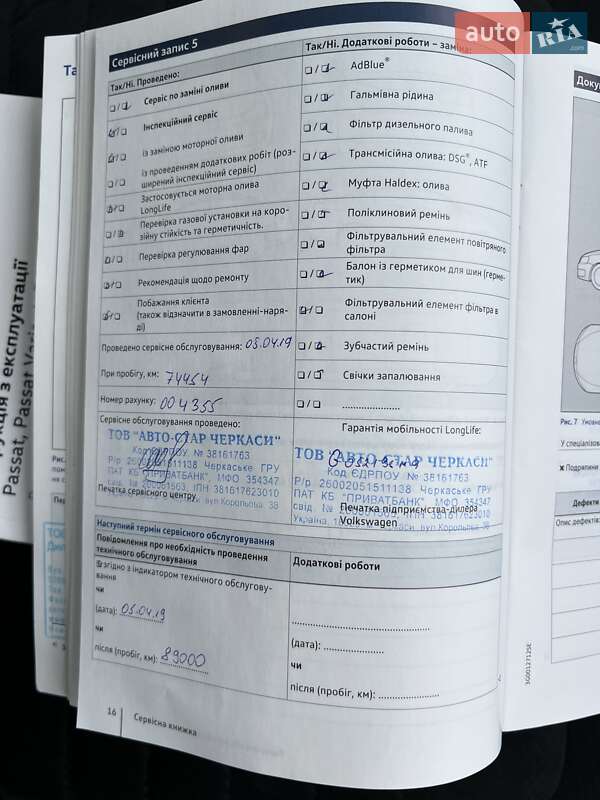 auto RIA.com
Сервісний запис 5
Так/Ні. Проведено:
Сервіс по заміні оливи
Інспекційний сервіс
із заміною моторної оливи
із проведенням додаткових робіт (роз-
ширений інспекційний сервіс)
Застосовується моторна олива
LongLife
Перевірка газової установки на коро-
зійну стійкість та герметичність.
Перевірка регулювання фар
Рекомендація щодо ремонту
Побажання клієнта
(також відзначити в замовленні-наря-
ді)
Проведено сервісне обслуговування: 05.04.19
При пробігу, км: 74454
Номер рахунку: 004355
Сервісне обслуговування проведено:
ТОВ "АВТО-СТАР ЧЕРКАСИ"
Код ЄДРПОУ № 38161763
Р/р 26002051511138 Черкаське ГРУ
ПАТ КБ "ПРИВАТБАНК", МФО 354347
ІПН 381617623010
Печатка сервісного центру
Так/Ні. Додаткові роботи – заміна:
AdBlue®
Гальмівна рідина
Фільтр дизельного палива
Трансмісійна олива: DSG®, ATF
Муфта Haldex: олива
Поліклиновий ремінь
Фільтрувальний елемент повітряного
фільтра
Балон із герметиком для шин (герме-
тик)
Фільтрувальний елемент фільтра в
салоні
Зубчастий ремінь
Свічки запалювання
Гарантія мобільності LongLife:
ТОВ "АВТО-СТАР ЧЕРКАСИ"
Код ЄДРПОУ № 38161763
Р/р 26002051511138 Черкаське ГРУ
ПАТ КБ "ПРИВАТБАНК" МФО 354347
ІПН 381617623010
Печатка підприємства-дилера
Volkswagen
Наступний термін сервісного обслуговування
Повідомлення про необхідність проведення
технічного обслуговування
згідно з індикатором технічного обслугову-
вання
чи
(дата): 05.04.19
чи
після (пробіг, км): 89000
Додаткові роботи
(дата):
чи
після (пробіг, км):
16
Сервісна книжка
кція з експлуатації
Passat, Passat
Та
Доку
Рис. 7 Умовне
У спеціалізов
✖ Подряпини
Дефекти
Опис дефектів:
3G0012712SE